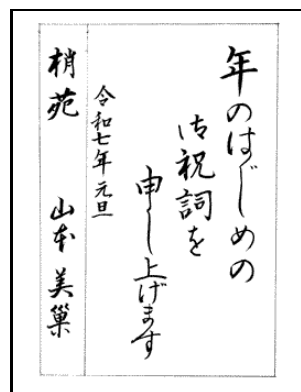 年のはじめの
御祝詞を
申し上げます
令和七年元旦
梢苑 山本美巣